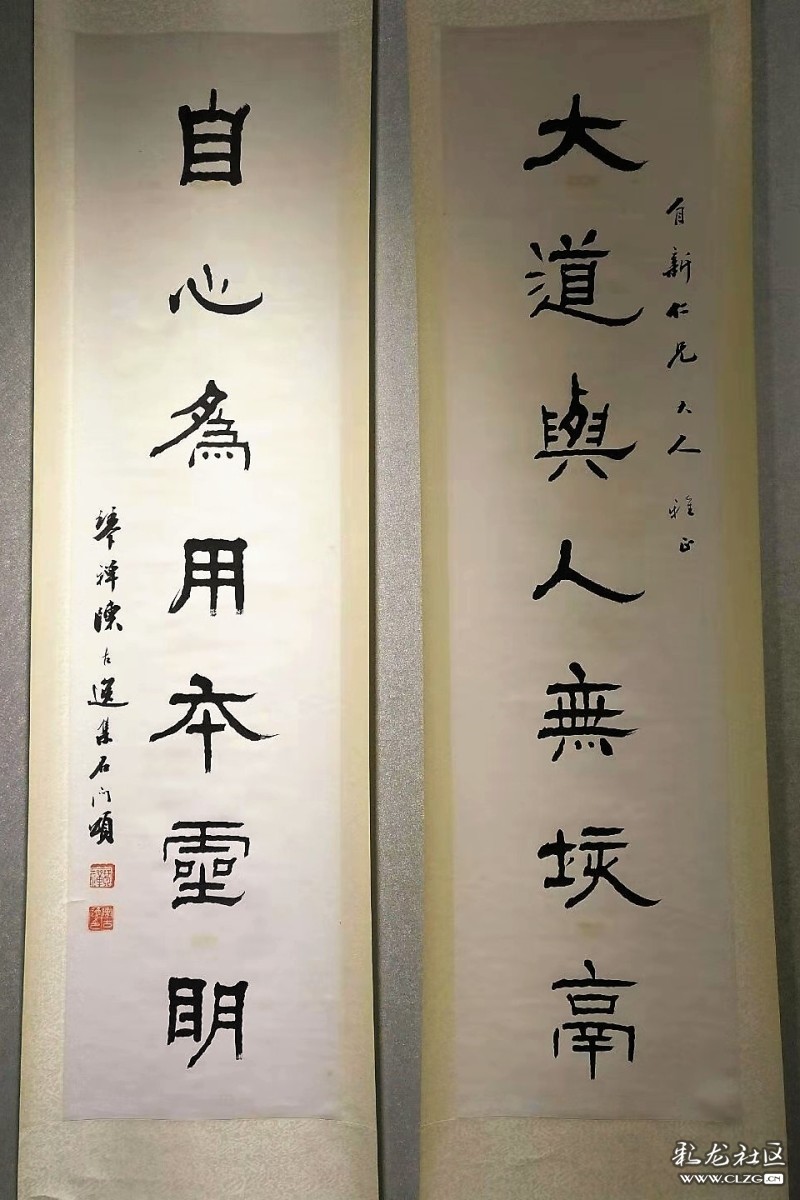 大道與人無垓鬲
自新仁兄大人 雅正
自心為用本靈明
琴禪陳古逸集石門頌
彩龙社区
www.CLZG.CN